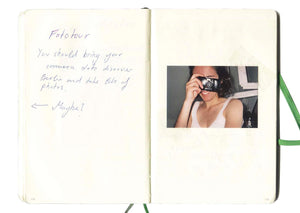 Fototour
You should bring your
camera, let's discover
Berlin and take lots of
photos.
← Maybe!